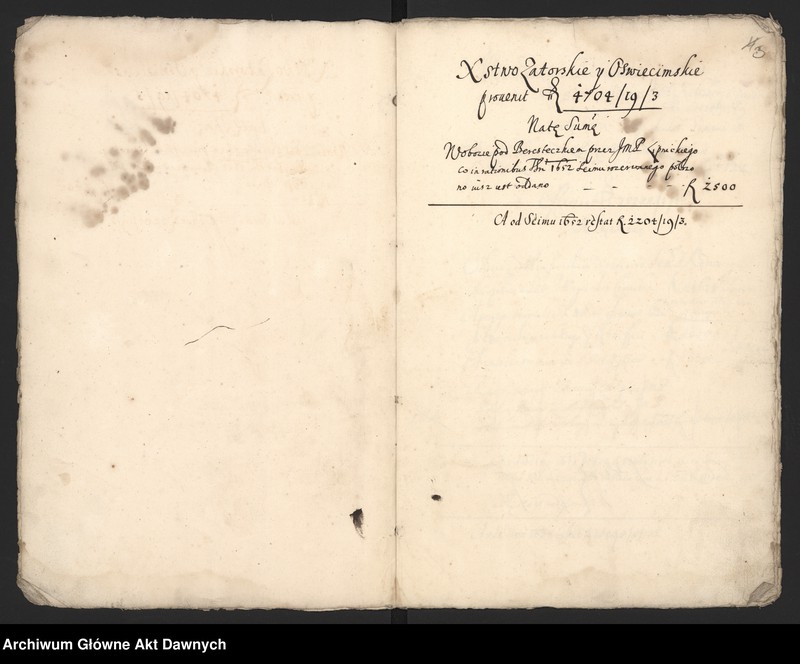 Xstwo Zatorskie y Oswiecimskie
prouenit fl 4704/19/3
Natę Sumę
Wobozie pod Beresteczkiem przez JmP Lipnickiego
co in rationibus 1652 Seimu
no iusz oddano - - - fl 2500
A od Seimu 1652 restat fl. 2204/19/3.
Archiwum Główne Akt Dawnych